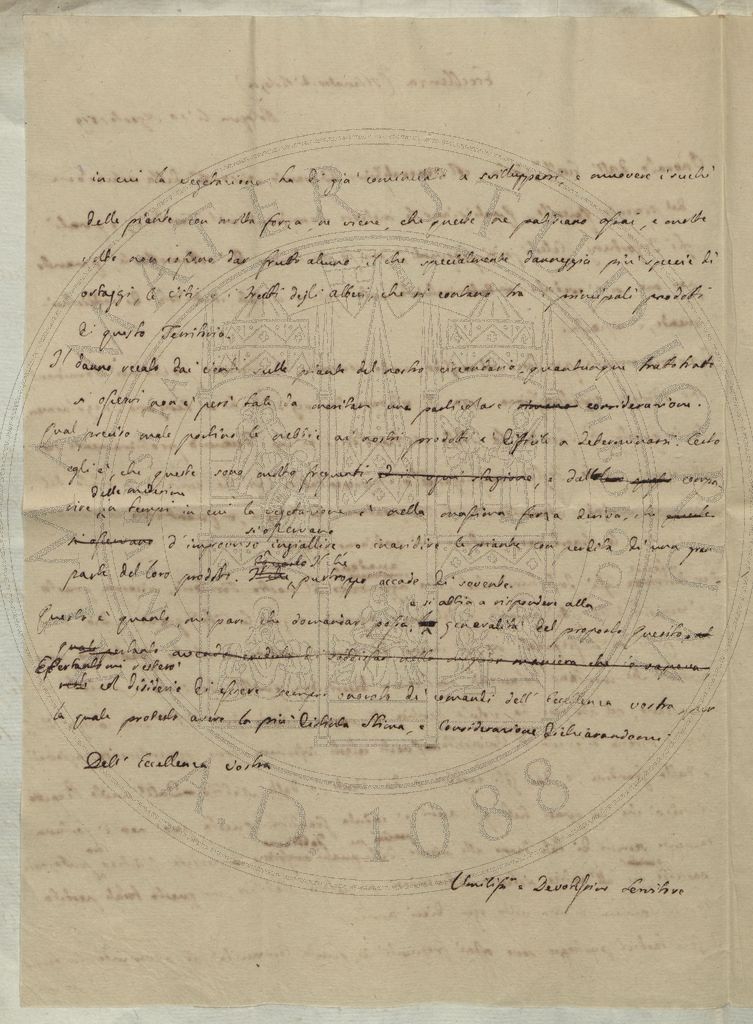 in cui la vegetazione ha di già cominciato a svilupparsi, e muovere i succhi
delle piante con molta forza ne viene, che queste ne patiscano assai, e molte
volte non possano dar frutto alcuno il che specialmente danneggia più specie di
ortaggi, le viti, e i frutti degli alberi, che si contano tra i principali prodotti
di questo Territorio.
Il danno recato dai venti sulle piante del nostro circondario, quantunque tratto tratto
si osservi non è però tale da meritare una particolare considerazione.
Qual preciso male portino le nebbie ai nostri prodotti è difficile a determinarsi. Certo
egli è, che queste sono molto frequenti, di ogni stagione, e dal
delle medesime
in tempi in cui la vegetazione è nella massima forza deriva, che
si osservano
si osservano d'improvviso ingiallire o inaridire le piante con perdita di una gran
parte del loro prodotto. purtroppo accade di sovente.
e si abbia a rispondere alla
Questo è quanto, mi pare che domandar possa, generalità del proposto Quesito,
pertanto di soddisfar nella miglior maniera che io sapeva,
E pertanto mi resterà
col desiderio di essere sempre onorato dei comandi dell'Eccellenza vostra, per
la quale protesto avere la più distinta stima, e considerazione dichiarandomi
Dell'Eccellenza vostra
Umiliss.mo e Devotissimo Servitore
ALMA MATER STUDIORUM
A.D. 1088